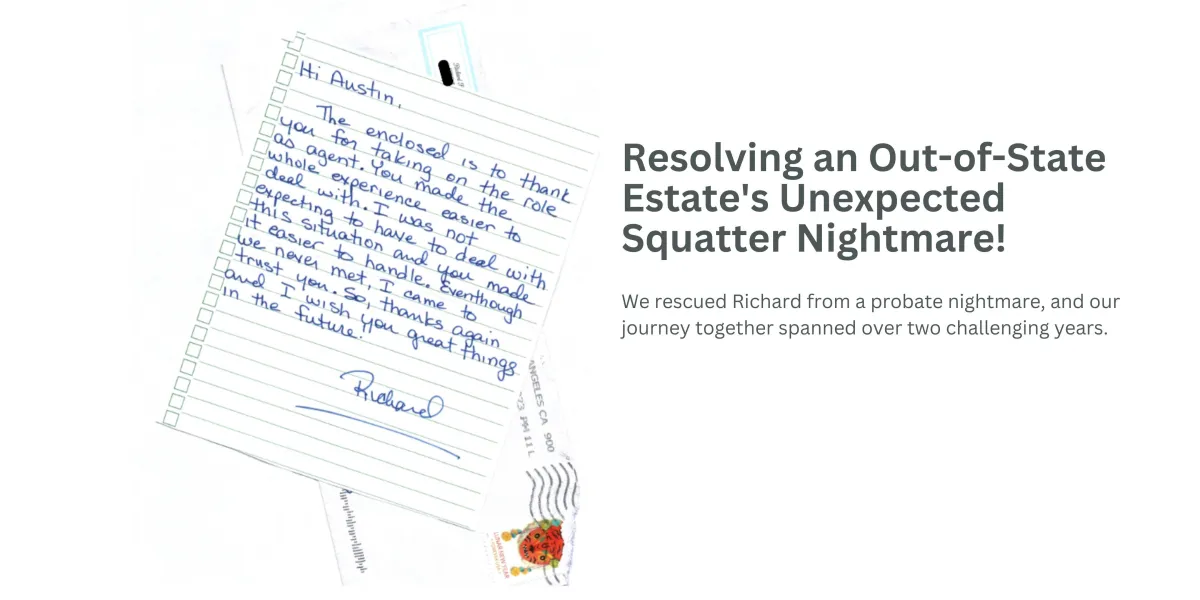 Hi Austin,
The enclosed is to thank
you for taking on the role
as agent. You made the
whole experience easier to
deal with. I was not
expecting to have to deal with
this situation and you made
it easier to handle. Eventhough
we never met, I came to
trust you. So, thanks again
and I wish you great things
in the future!
Richard
ANGELES CA 900
23 PM 11 L
LUNAR NEW YEAR
Resolving an Out-of-State
Estate's Unexpected
Squatter Nightmare!
We rescued Richard from a probate nightmare, and our
journey together spanned over two challenging years.